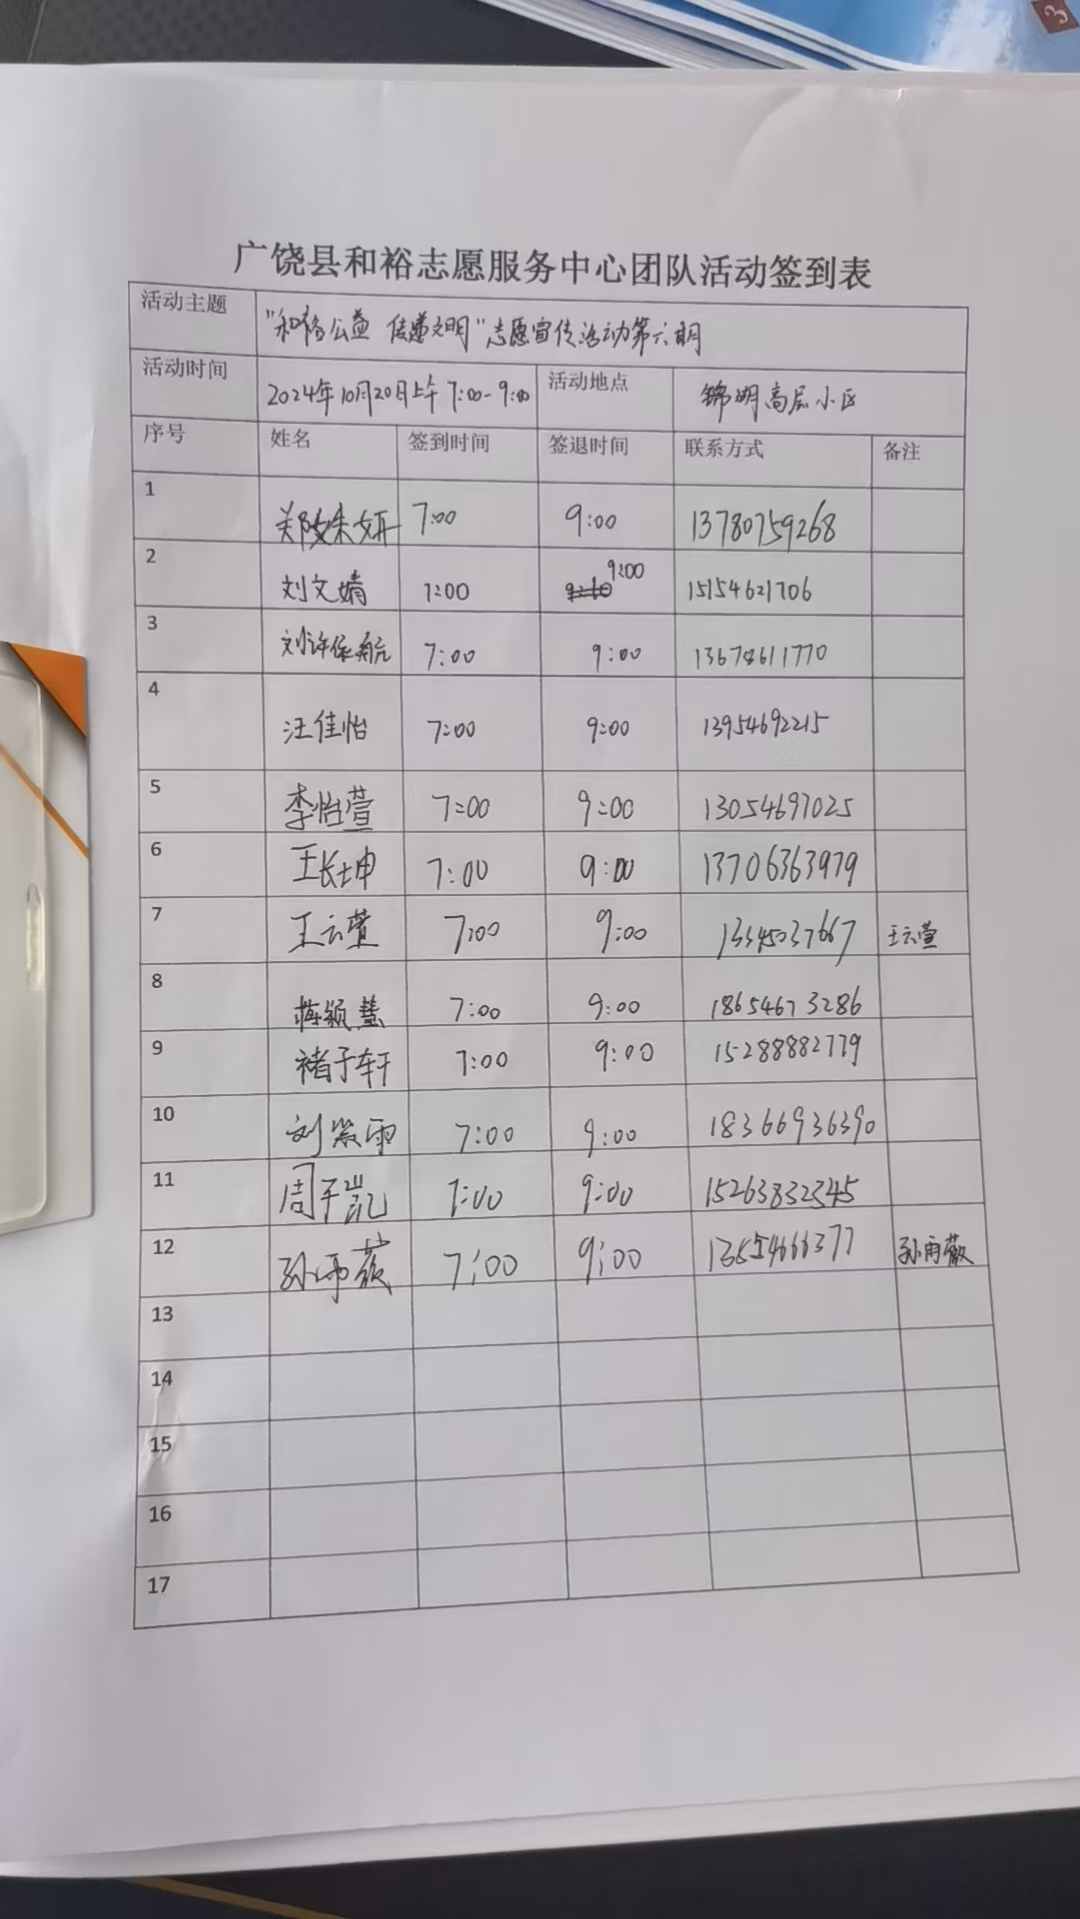 3
广饶县和裕志愿服务中心团队活动签到表
活动主题 "和裕公益 传递文明"志愿宣传活动第六期
活动时间 2024年10月20日上午7:00-9:00 活动地点 锦明高层小区
序号 姓名 签到时间 签退时间 联系方式 备注
1 郑姝妍 7:00 9:00 13780759268
2 刘文婧 7:00 9:00 15154621706
3 刘许保航 7:00 9:00
4 汪佳怡 7:00 9:00 13954692215
5 李怡萱 7:00 9:00 13054697025
6 王长坤 7:00 9:00 13706363979
7 王云萱 7:00 9:00 13345037667 王云萱
8 蒋颖慧 7:00 9:00 18654673286
9 褚子轩 7:00 9:00 15288882779
10 刘紫雨 7:00 9:00 18366936390
11 周子凯 7:00 9:00 15263832345
12 孙雨薇 7:00 9:00 孙雨薇
13
14
15
16
17